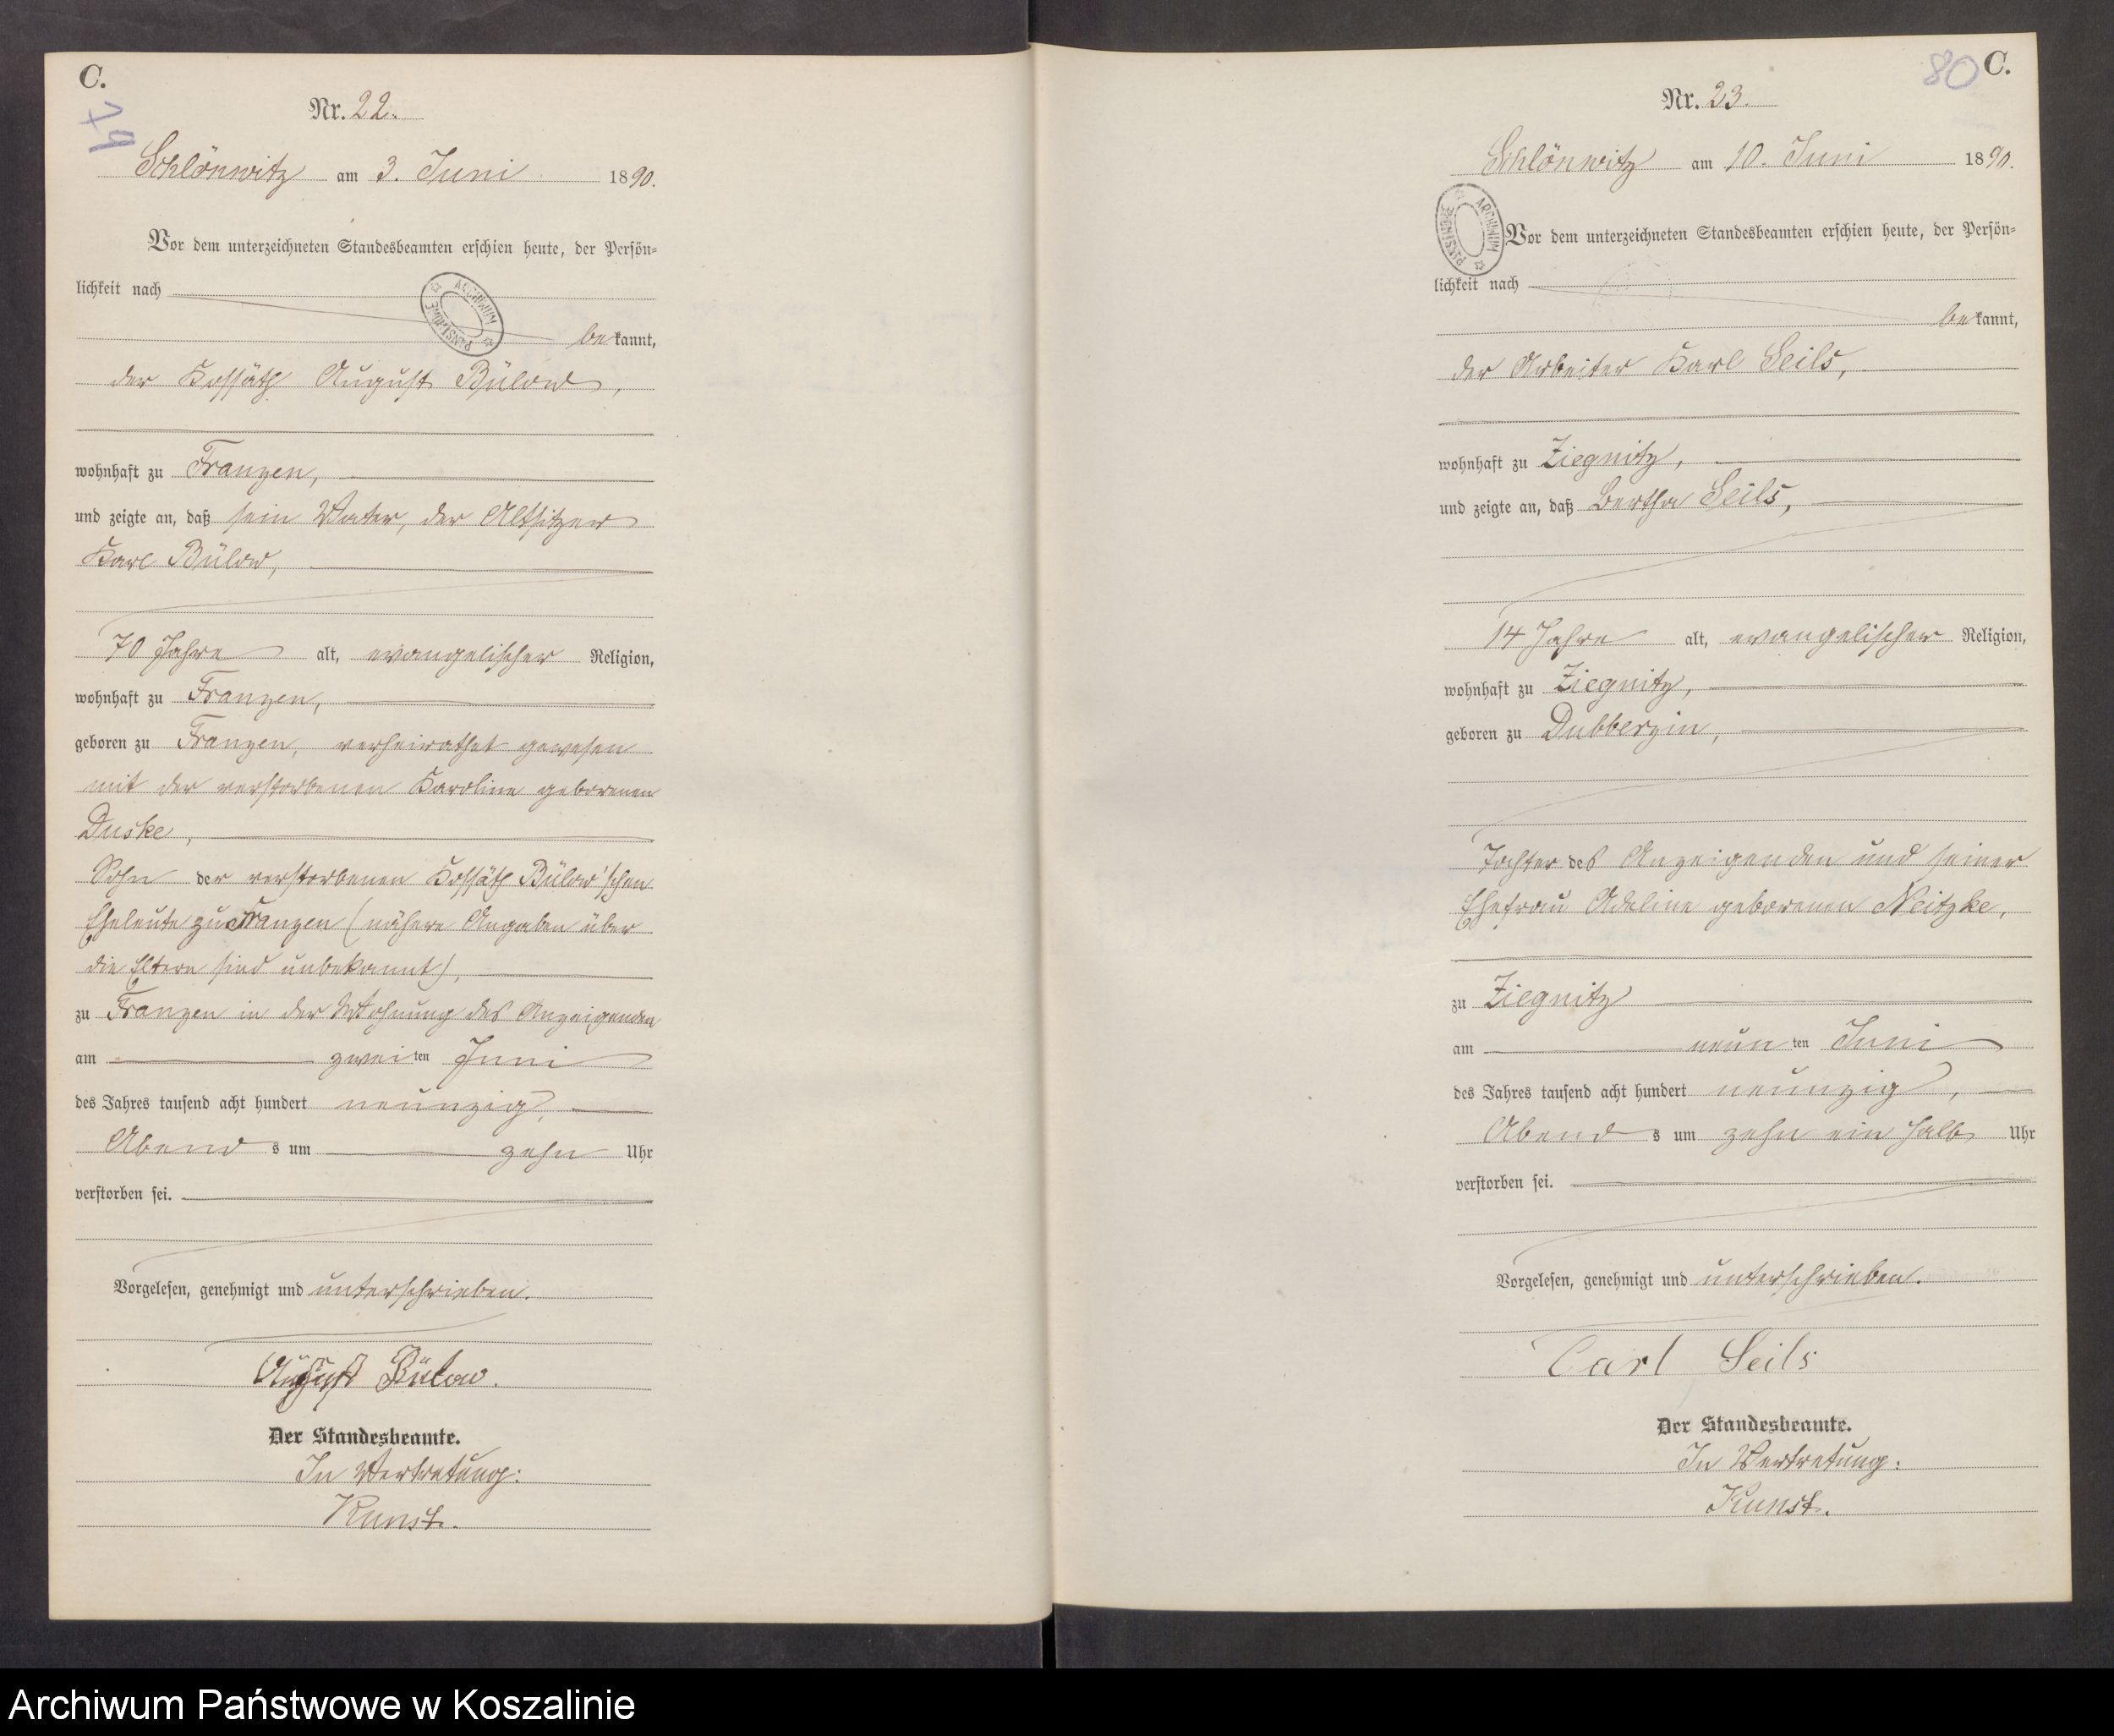 C.
Nr. 22.
Schlönwitz am 3. Juni 1890.
Vor dem unterzeichneten Standesbeamten erschien heute, der Persön-
lichkeit nach
bekannt,
der Kossäth August Bülow,
wohnhaft zu Franzen,
und zeigte an, daß sein Vater, der Altsitzer
Karl Bülow,
70 Jahre alt, evangelischer Religion,
wohnhaft zu Franzen,
geboren zu Franzen, verheirathet gewesen
mit der verstorbenen Karoline geborenen
Duske,
Sohn der verstorbenen Kossäth Bülow'schen
Eheleute zu Franzen (nähere Angaben über
die Eltern sind unbekannt),
zu Franzen in der Wohnung des Anzeigenden
am zweiten Juni
des Jahres tausend acht hundert neunzig,
Abends um zehn Uhr
verstorben sei.
Vorgelesen, genehmigt und unterschrieben.
August Bülow.
Der Standesbeamte.
In Vertretung:
Kunst.
ARCHIWUM PAŃSTWOWE
80 C.
Nr. 23.
Schlönwitz am 10. Juni 1890.
ARCHIWUM PAŃSTWOWE
Vor dem unterzeichneten Standesbeamten erschien heute, der Persön-
lichkeit nach
bekannt,
der Arbeiter Karl Seils,
wohnhaft zu Ziegnitz,
und zeigte an, daß Bertha Seils,
14 Jahre alt, evangelischer Religion,
wohnhaft zu Ziegnitz,
geboren zu Dubberzin,
Tochter des Anzeigenden und seiner
Ehefrau Adeline geborenen Neitzke,
zu Ziegnitz
am neunten Juni
des Jahres tausend acht hundert neunzig,
Abends um zehn ein halb Uhr
verstorben sei.
Vorgelesen, genehmigt und unterschrieben.
Carl Seils
Der Standesbeamte.
In Vertretung:
Kunst.
Archiwum Państwowe w Koszalinie